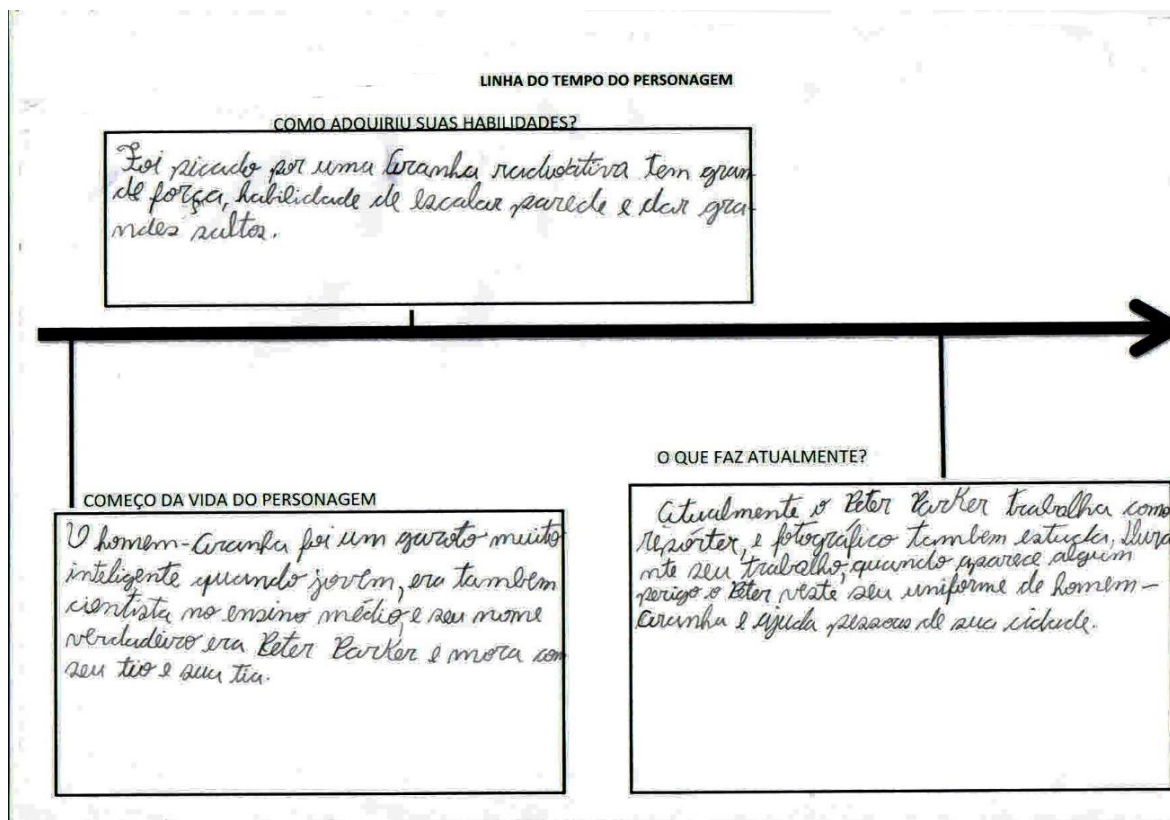 LINHA DO TEMPO DO PERSONAGEM
COMO ADQUIRIU SUAS HABILIDADES?
Foi picado por uma Aranha radioativa tem gran
de força, habilidade de escalar parede e dar gra-
ndes saltos.
COMEÇO DA VIDA DO PERSONAGEM
O homem-Aranha foi um garoto muito
inteligente quando jovem, era também
cientista no ensino médio, e seu nome
verdadeiro era Peter Parker e mora com
seu tio e sua tia.
O QUE FAZ ATUALMENTE?
Atualmente o Peter Parker trabalha como
repórter, e fotográfico tambem estuda, Dura
nte seu trabalho, quando aparece algum
perigo o Peter veste seu uniforme de homem-
Aranha e ajuda pessoas de sua cidade.